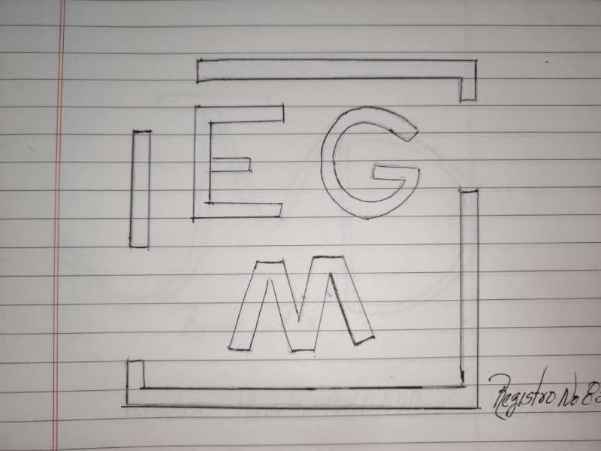 EG
M
Registro No 8